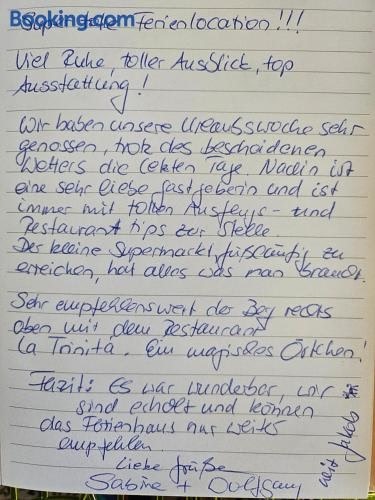 Booking.com
Super tolle Ferienlocation!!!
Viel Ruhe, toller Ausblick, top
Ausstattung!
Wir haben unsere Urlaubswoche sehr
genossen, trotz des bescheidenen
Wetters die letzten Tage. Nadin ist
eine sehr liebe Gastgeberin und ist
immer mit tollen Ausflugs- und
Restaurant tips zur Stelle.
Der kleine Supermarkt, fußläufig zu
erreichen, hat alles was man braucht.
Sehr empfehlenswert der Berg rechts
oben mit dem Restaurant
La Trinità. Ein magisches Örtchen!
Fazit: Es war wunderbar, wir
sind erholt und können
das Ferienhaus nur weiter
empfehlen.
Liebe Grüße
Sabine + Wolfgang
mit Jakob